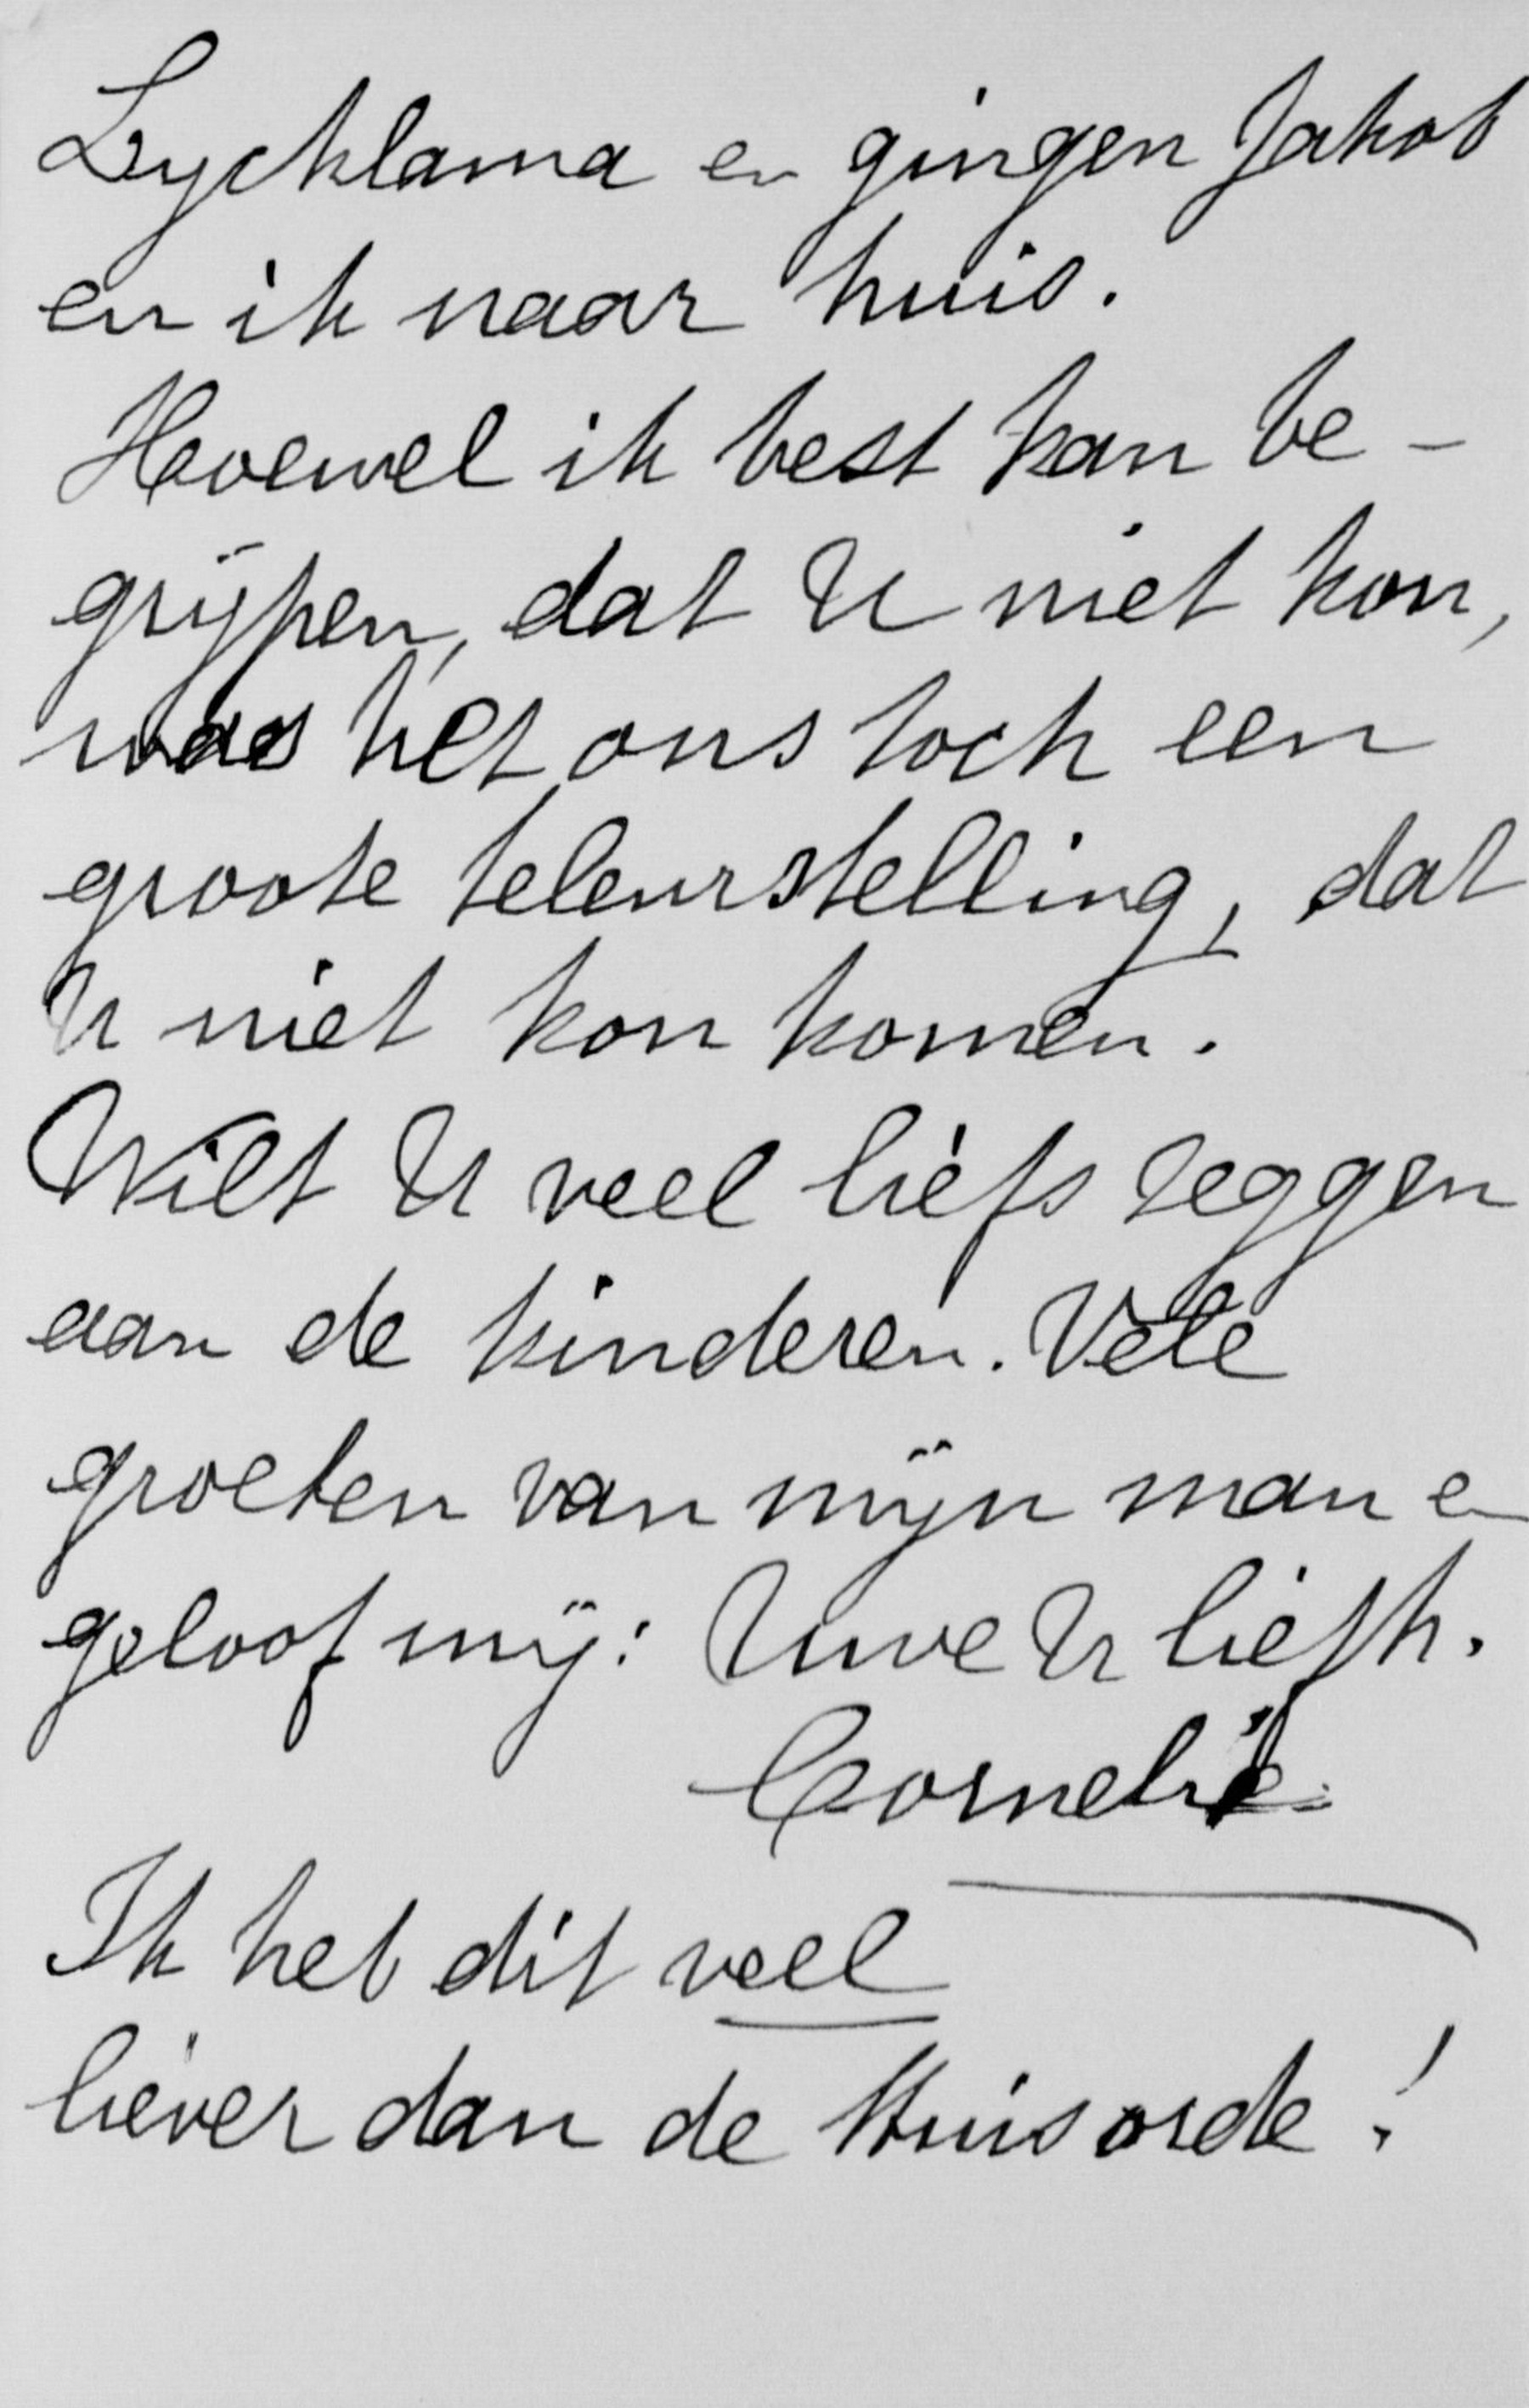 Lycklama en gingen Jakob
en ik naar huis.
Hoewel ik best kan be-
grijpen, dat U niet kon,
was het ons toch een
groote teleurstelling, dat
U niet kon komen.
Wilt U veel liefs zeggen
aan de kinderen. Vele
groeten van mijn man en
geloof mij: Uwe U liefh.
Cornelie
Ik heb dit veel
liever dan de Huisorde!